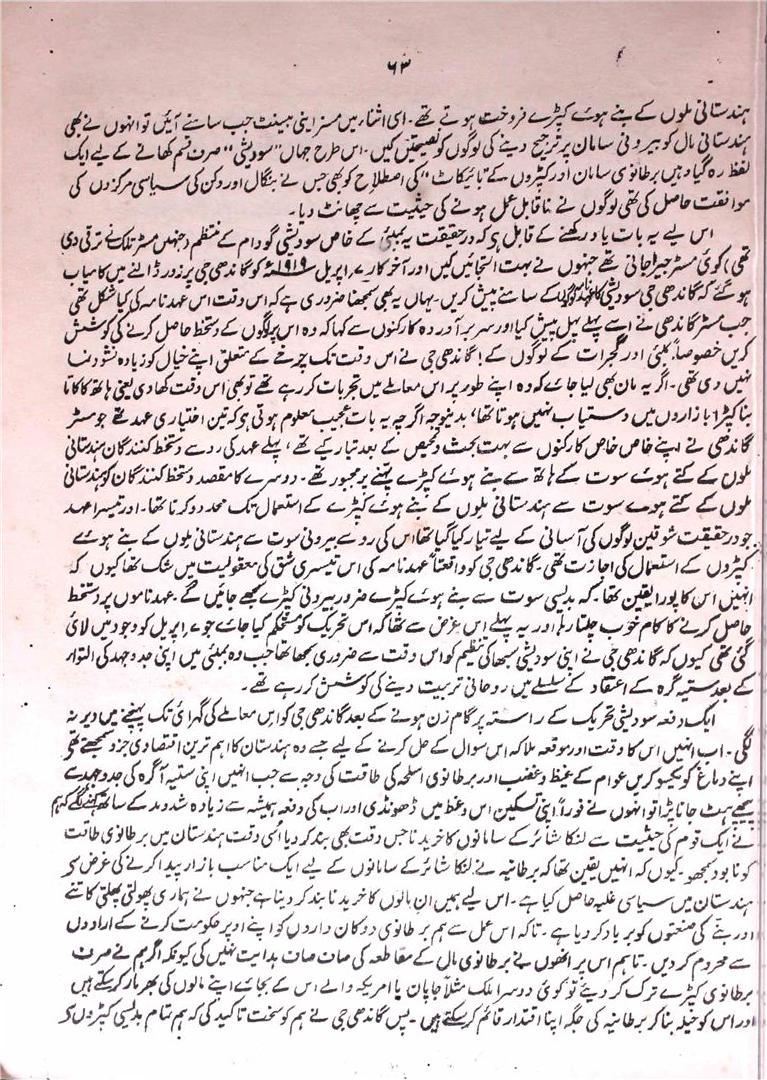 ۶۳
ہندستانی ملوں کے بنے ہوئے کپڑے فروخت ہوتے تھے ۔ اسی اثناء میں مسز اینی بیسنٹ جب سامنے آئیں تو انہوں نے بھی
ہندستانی مال کو بیرونی سامان پر ترجیح دینے کی لوگوں کو نصیحتیں کیں ۔ اس طرح جہاں "سودیشی" صرف قسم کھانے کے لیے ایک
لفظ رہ گیا وہیں برطانوی سامان اور کپڑوں کے "بائیکاٹ" کی اصطلاح کو بھی جس نے بنگال اور دکن کی سیاسی مرکزوں کی
موافقت حاصل کی تھی لوگوں نے ناقابل عمل ہونے کی حیثیت سے چھانٹ دیا ۔
اس لیے یہ بات یاد رکھنے کے قابل ہی کہ درحقیقت یہ بمبئی کے خاص سودیشی گودام کے منتظم (جنہیں مسٹر تلک نے ترقی دی
تھی) کوئی مسٹر جیراجانی تھے جنہوں نے بہت التجائیں کیں اور آخر کار ۷؍ اپریل ۱۹۱۹ء کو گاندھی جی پر زور ڈالنے میں کامیاب
ہو گئے کہ گاندھی جی سودیشی کا عہد نامہ لوگوں کے سامنے پیش کریں ۔ یہاں یہ بھی سمجھنا ضروری ہے کہ اس وقت اس عہد نامہ کی کیا شکل تھی
جب مسٹر گاندھی نے اسے پہلے پہل پیش کیا اور سربرآوردہ کارکنوں سے کہا کہ وہ اس پر لوگوں کے دستخط حاصل کرنے کی کوشش
کریں خصوصاً بمبئی اور گجرات کے لوگوں کے! گاندھی جی نے اس وقت تک چرخے کے متعلق اپنے خیال کو زیادہ نشوونما
نہیں دی تھی ۔ اگر یہ مان بھی لیا جائے کہ وہ اپنے طور پر اس معاملے میں تجربات کر رہے تھے تو بھی اس وقت کھادی یعنی ہاتھ کا کاتا
بنا کپڑا بازاروں میں دستیاب نہیں ہوتا تھا، بدینوجہ اگرچہ یہ بات عجیب معلوم ہوتی ہی کہ تین اختیاری عہد تھے جو مسٹر
گاندھی نے اپنے خاص خاص کارکنوں سے بہت بحث و تمحیص کے بعد تیار کیے تھے، پہلے عہد کی رو سے دستخط کنندگان ہندستانی
ملوں کے کتے ہوئے سوت کے ہاتھ سے بنے ہوئے کپڑے پہننے پر مجبور تھے ۔ دوسرے کا مقصد دستخط کنندگان کو ہندستانی
ملوں کے کتے ہوے سوت سے ہندستانی ملوں کے بنے ہوئے کپڑے کے استعمال تک محدود کرنا تھا ۔ اور تیسرا عہد
جو درحقیقت شوقین لوگوں کی آسانی کے لیے تیار کیا گیا تھا اس کی رو سے بیرونی سوت سے ہندستانی ملوں کے بنے ہوئے
کپڑوں کے استعمال کی اجازت تھی ۔ گاندھی جی کو واقعتاً عہد نامہ کی اس تیسری شق کی معقولیت میں شک تھا کیوں کہ
انہیں اس کا پورا یقین تھا کہ بدیسی سوت سے بنے ہوئے کپڑے ضرور بیرونی کپڑے سمجھے جائیں گے ۔ عہدناموں پر دستخط
حاصل کرنے کا کام خوب چلتا رہا اور یہ پہلے اس غرض سے تھا کہ اس تحریک کو مستحکم کیا جائے جو ۷؍ اپریل کو وجود میں لائی
گئی تھی کیوں کہ گاندھی جی نے اپنی سودیشی سبھا کی تنظیم کو اس وقت سے ضروری سمجھا تھا جب وہ بمبئی میں اپنی جدوجہد کی التوار
کے بعد ستیہ گرہ کے اعتقاد کے سلسلے میں روحانی تربیت دینے کی کوشش کر رہے تھے ۔
ایک دفعہ سودیشی تحریک کے راستہ پر گام زن ہونے کے بعد گاندھی جی کو اس معاملے کی گہرائی تک پہنچنے میں دیر نہ
لگی ۔ اب انہیں اس کا وقت اور موقعہ ملا کہ اس سوال کے حل کرنے کے لیے جسے وہ ہندستان کا اہم ترین اقتصادی جزو سمجھتے تھے
اپنے دماغ کو یکسو کریں عوام کے غیظ و غضب اور برطانوی اسلحہ کی طاقت کی وجہ سے جب انہیں اپنی ستیہ آگرہ کی جدوجہد سے
پیچھے ہٹ جانا پڑا تو انہوں نے فوراً اپنی تسکین اس وعظ میں ڈھونڈی اور اب کی دفعہ ہمیشہ سے زیادہ شد و مد کے ساتھ کہنے لگے کہ ہم
نے ایک قوم کی حیثیت سے لنکا شائر کے سامانوں کا خریدنا جس وقت بھی بند کر دیا اسی وقت ہندستان میں برطانوی طاقت
کو نابود سمجھو ۔ کیوں کہ انہیں یقین تھا کہ برطانیہ نے لنکا شائر کے سامانوں کے لیے ایک مناسب بازار پیدا کرنے کی غرض سے
ہندستان میں سیاسی غلبہ حاصل کیا ہے ۔ اس لیے ہمیں ان مالوں کا خریدنا بند کر دینا ہے جنہوں نے ہماری پھولتی پھلتی کاتنے
اور بننے کی صنعتوں کو برباد کر دیا ہے ۔ تاکہ اس عمل سے ہم برطانوی دوکان داروں کو اپنے اوپر حکومت کرنے کے ارادوں
سے محروم کر دیں ۔ تاہم اس پر انھوں نے برطانوی مال کے مقاطعہ کی صاف صاف ہدایت نہیں کی کیونکہ اگر ہم نے صرف
برطانوی کپڑے ترک کر دیئے تو کوئی دوسرا ملک مثلاً جاپان یا امریکہ والے اس کے بجائے اپنے مالوں کی بھرمار کر سکتے ہیں
اور اس کو حیلہ بنا کر برطانیہ کی جگہ اپنا اقتدار قائم کر سکتے ہیں ۔ پس گاندھی جی نے ہم کو سخت تاکید کی کہ ہم تمام بدیسی کپڑوں کی